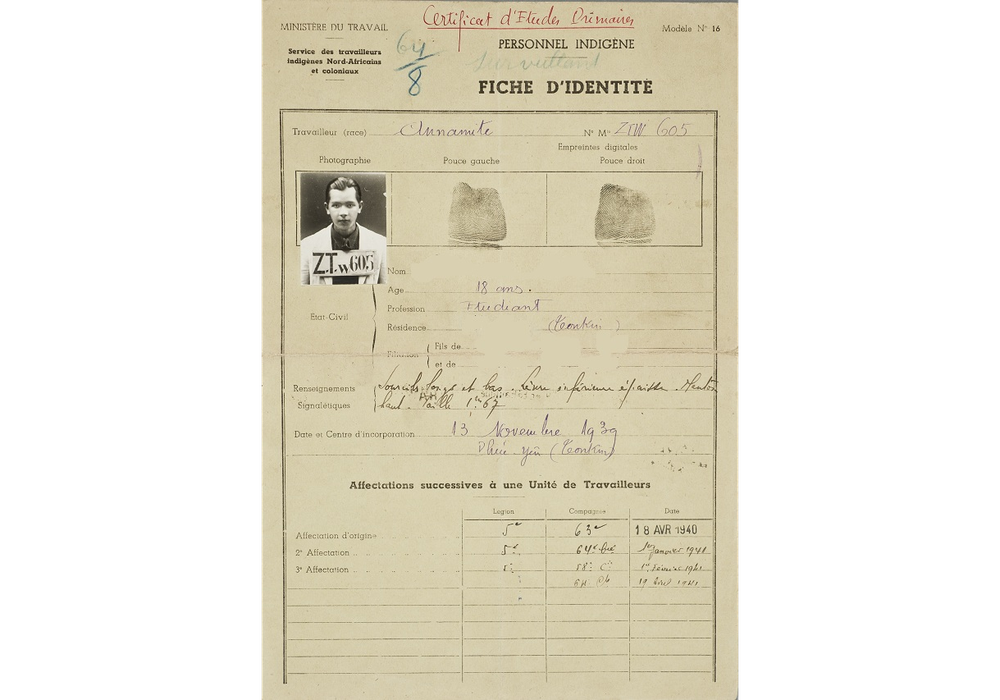 Certificat d'Etudes Primaires
MINISTÈRE DU TRAVAIL
Modèle N° 16
Service des travailleurs
indigènes Nord-Africains
et coloniaux
64
8
PERSONNEL INDIGÈNE
Surveillant
FICHE D'IDENTITÉ
Travailleur (race) Annamite N° Mle ZTW 605
Empreintes digitales
Photographie Pouce gauche Pouce droit
Z.T.W605
Nom
Age 18 ans.
Profession Etudiant
Etat-Civil
Résidence (Tonkin)
Filiation Fils de
et de
Renseignements Sourcils longs et bas. Lèvre inférieure épaisse. Menton
Signalétiques haut. Taille 1m67
Date et Centre d'incorporation 13 Novembre 1939
(Tonkin)
Affectations successives à une Unité de Travailleurs
Légion Compagnie Date
Affectation d'origine 5e 63e 18 AVR 1940
2e Affectation 5e 64e 1er Janvier 1941
3e Affectation 5e 58e Cie 1er Février 1941
19 Avril 1941